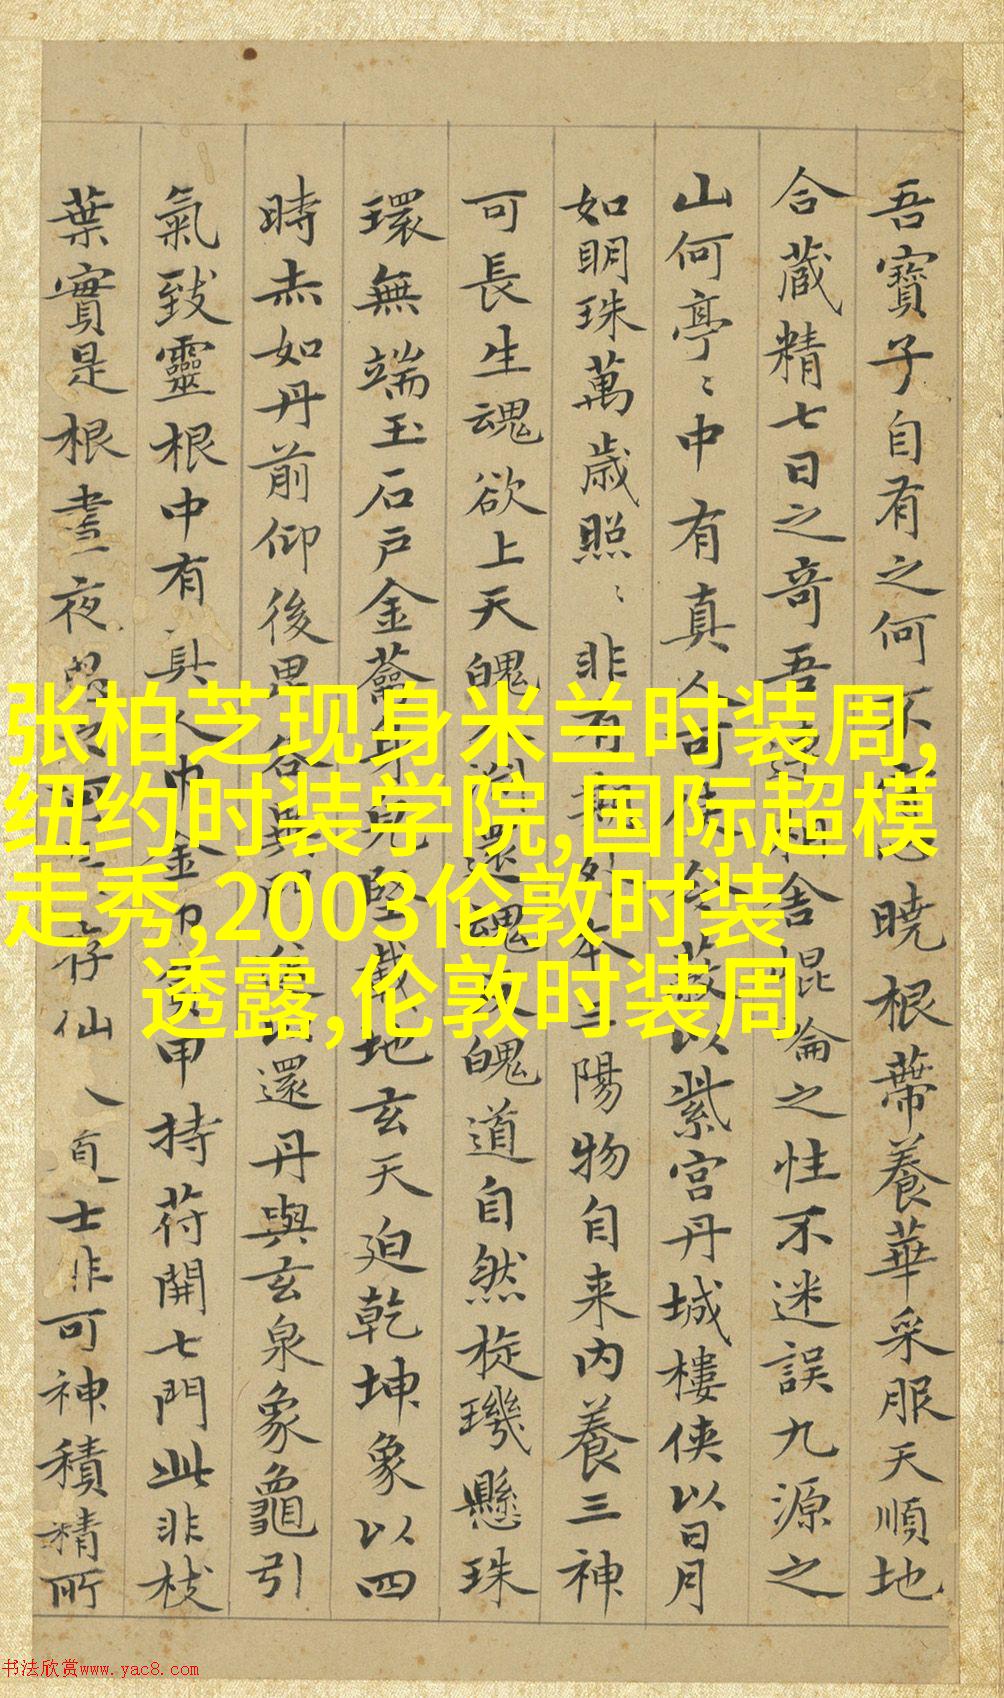 吾寶子自有之何不 暁根蔕養華采服天順地
合藏精七日之奇吾 舍崐崘之性不迷誤九源之
山何亭〻中有真人 以紫宮丹城樓俠以日月
如明珠萬歳照〻非有 三陽物自来內養三神
可長生魂欲上天魄 還魂 魄道自然旋璣懸珠
環無端玉石戶金蘥身 堅載地玄天迫乾坤象以四
時赤如丹前仰後 門 還丹與玄泉象龜引
氣致靈根中有真人巾金巾 甲持苻開七門此非枝
葉實是根晝夜思 存仙 士非可神積精所
张柏芝现身米兰时装周,
纽约时装学院,国际超模
走秀,2003伦敦时装
透露,伦敦时装周
书法欣赏www.yac8.com